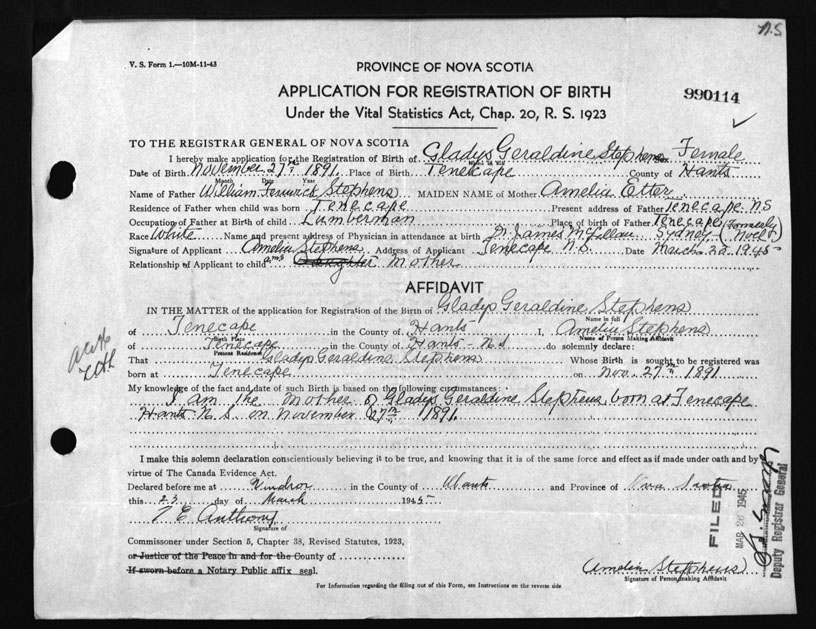 N.S
V. S. Form 1.—10M-11-43
PROVINCE OF NOVA SCOTIA
APPLICATION FOR REGISTRATION OF BIRTH
990114
Under the Vital Statistics Act, Chap. 20, R. S. 1923
TO THE REGISTRAR GENERAL OF NOVA SCOTIA
I hereby make application for the Registration of Birth of Gladys Geraldine Stephens Sex Female
Date of Birth November 27th 1891 Place of Birth Tenecape County of Hants
Month Date Year
Name of Father William Fenwick Stephens MAIDEN NAME of Mother Amelia Etter
Residence of Father when child was born Tenecape Present address of Father Tenecape N.S
Occupation of Father at Birth of child Lumberman Place of birth of Father Tenecape (formerly
Race White Name and present address of Physician in attendance at birth Dr. James Sydney Noel)
Signature of Applicant Amelia Stephens Address of Applicant Tenecape N.S. Date March 22 1945
Relationship of Applicant to child Daughter Mother
AFFIDAVIT
IN THE MATTER of the application for Registration of the Birth of Gladys Geraldine Stephens
Name in full
of Tenecape in the County of Hants I, Amelia Stephens
Birth Place Name of Person Making Affidavit
of Tenecape in the County of Hants - N.S do solemnly declare:
Present Residence
That Gladys Geraldine Stephens Whose Birth is sought to be registered was
born at Tenecape on Nov. 27th 1891
My knowledge of the fact and date of such Birth is based on the following circumstances:
I am the Mother of Gladys Geraldine Stephens born at Tenecape
Hants N.S. on November 27th 1891.
I make this solemn declaration conscientiously believing it to be true, and knowing that it is of the same force and effect as if made under oath and by
virtue of The Canada Evidence Act.
Declared before me at Windsor in the County of Hants and Province of Nova Scotia
this 23 day of March 1945
T E Anthony
Signature of
Commissioner under Section 5, Chapter 38, Revised Statutes, 1923,
or Justice of the Peace in and for the County of
If sworn before a Notary Public affix seal.
Amelia Stephens
Signature of Person making Affidavit
For Information regarding the filling out of this Form, see Instructions on the reverse side
FILED
MAR 26 1945
Deputy Registrar General